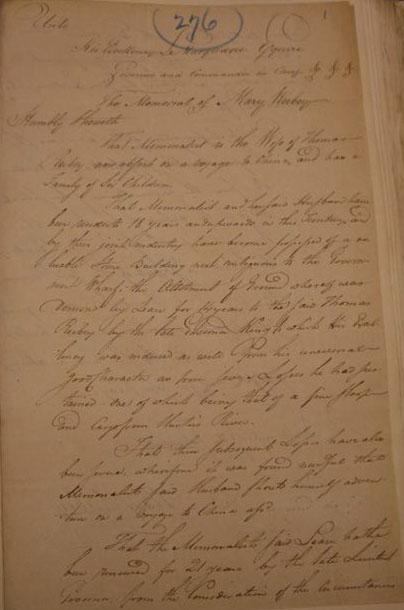 276
1
Copy
His Excellency
Governor and Commander in &c &c &c
The Memorial of Mary
Humbly Sheweth
That Memorialist is the Wife of Thomas
now absent on a voyage to China, and has a
Family of Six Children
That Memorialist and her said Husband have
been resident 18 years and upwards in this Territory, and
by their joint industry have become possessed of a va
luable Stone Building next contiguous to the Govern
ment Wharf the Allotment of Ground whereof was
by Lease for 14 years to the said Thomas
by the late Governor King to which His Excel
lency was induced as well from his universal
good Character as from severe Losses he had sus
tained one of which being that of a fine Sloop
and Cargo from Hunter's River.
That their subsequent Losses have also
been severe, wherefore it was found needful that
Memorialists said Husband should himself adven
ture on a Voyage to China
That the Memorialists said Lease hath
been renewed for 21 years by the late Lieutent
Governor, from the Consideration of the Circumstances